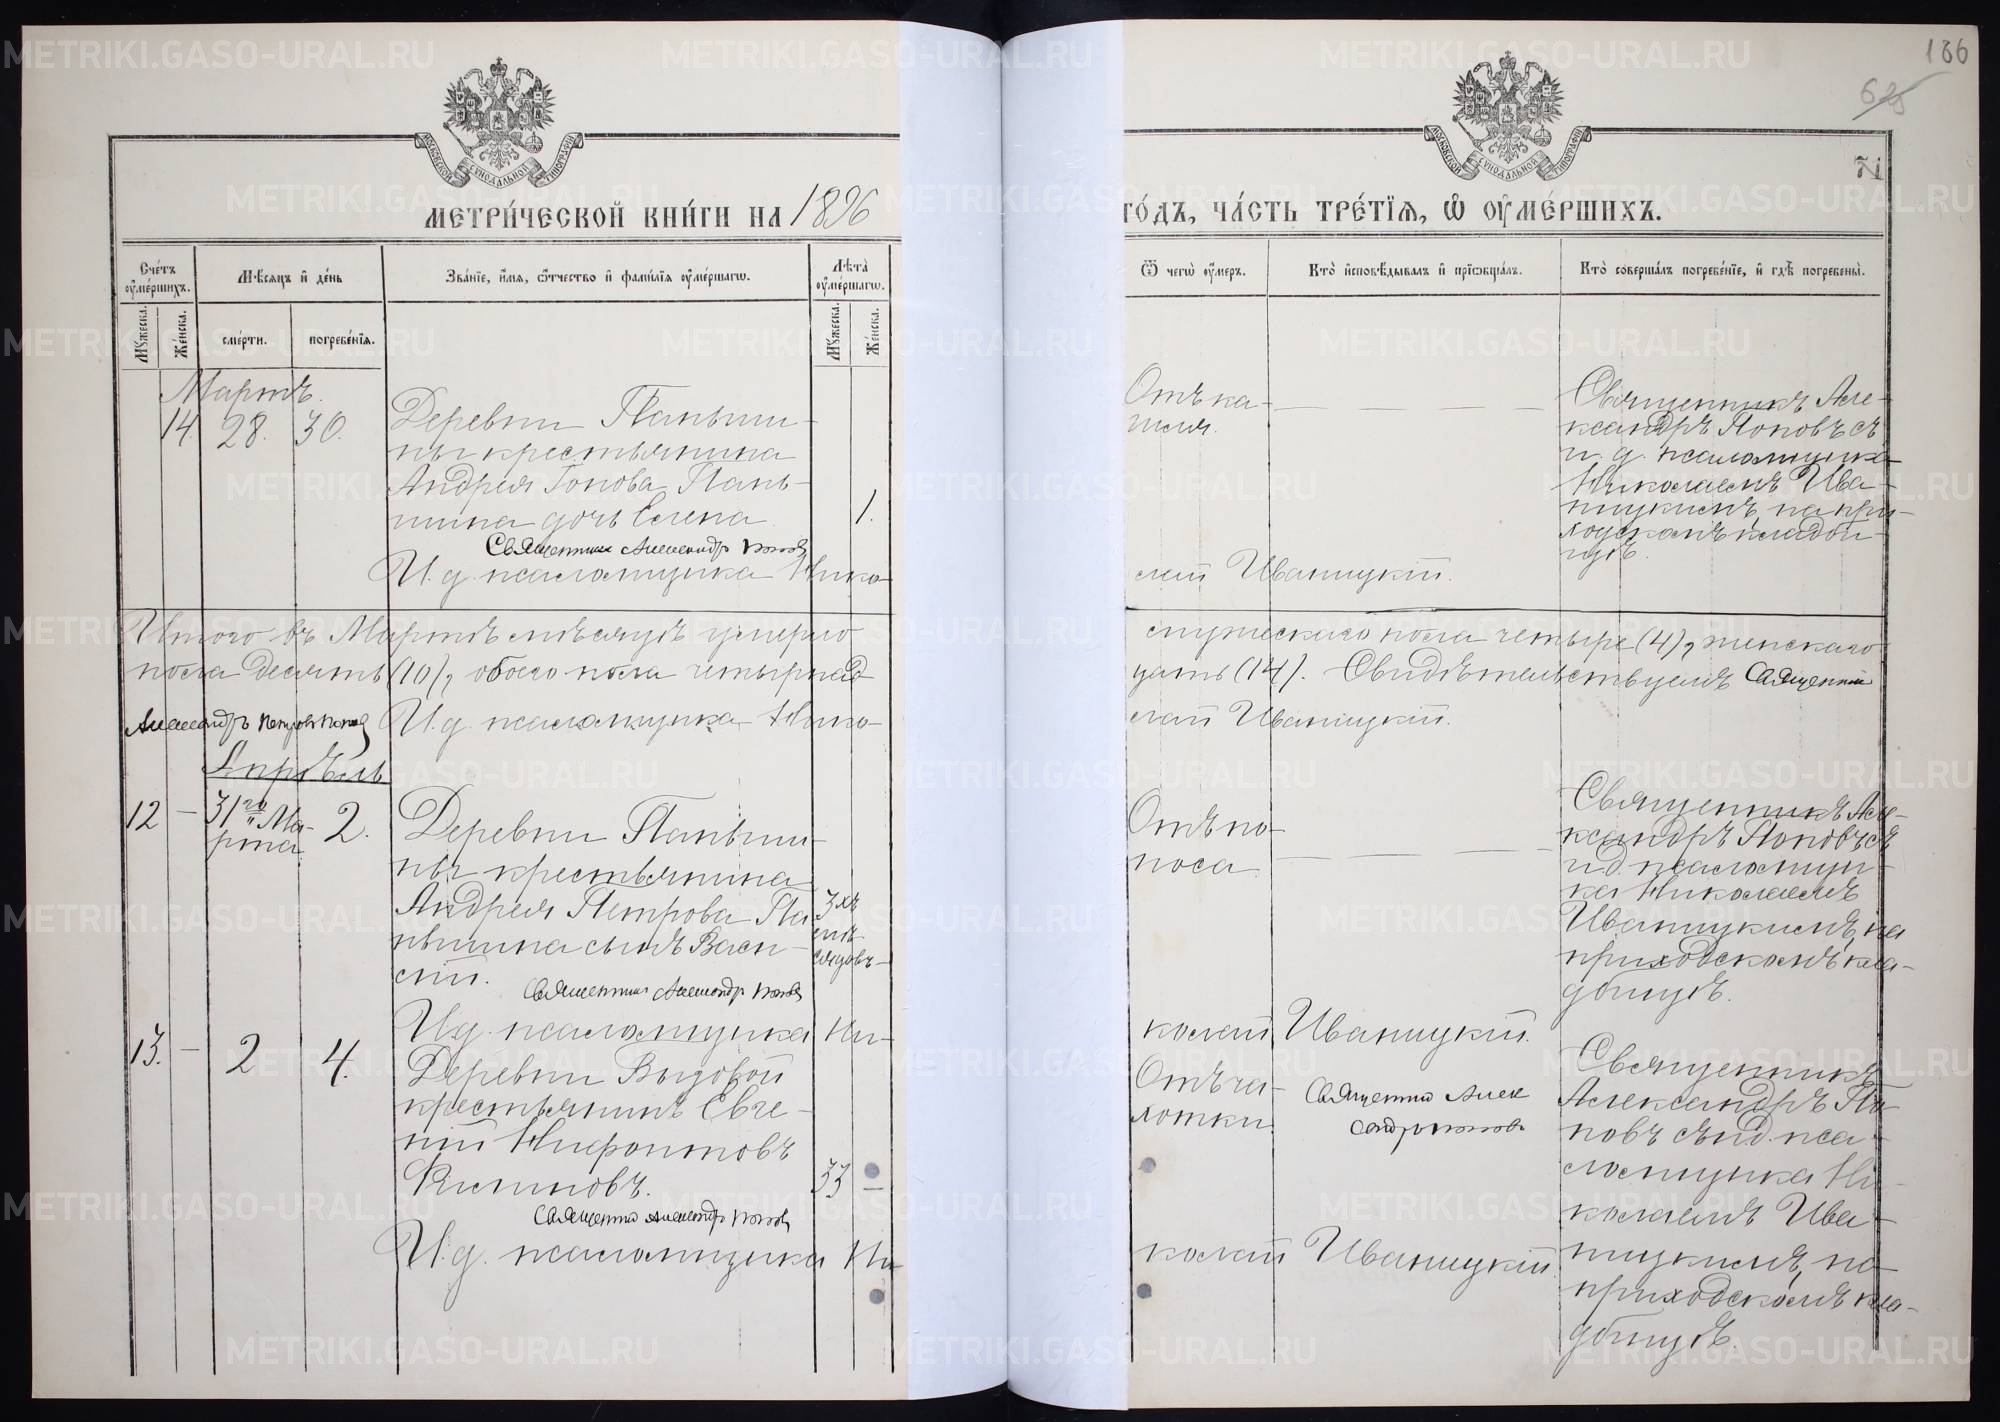 186
625
МЕТРИ́ЧЕСКОЙ КНИ́ГИ НА 1896
ГО́ДЪ, ЧА́СТЬ ТРЕ́ТЇЯ, Ѡ҆ ОУ҆МЕ́РШИХЪ.
МОСКОВСКОЙ СУНОДАЛЬНОЙ ТИПОГРАФІИ
МОСКОВСКОЙ СУНОДАЛЬНОЙ ТИПОГРАФІИ
Сче́тъ оу҆ме́ршихъ.
Мѣ́сяцъ и҆ де́нь
Зва́нїе, и҆́мя, ѻ҆́тчество и҆ фами́лїя оу҆ме́ршагѡ.
Лѣ́та оу҆ме́ршагѡ.
Ѿ чегѡ̀ оу҆́меръ.
Кто̀ и҆сповѣ́дывалъ и҆ прїѡбща́лъ.
Кто̀ соверша́лъ погребе́нїе, и҆ гдѣ̀ погребены̀.
Мꙋ́жеска.
Же́нска.
сме́рти.
погребе́нїя.
Мꙋ́жеска.
Же́нска.
Мартъ.
14 28. 30.
Деревни Паньши-
ны крестьянина
Андрея Попова Пань-
шина дочь Елена
1.
Отъ ка-
шля.
Священникъ Але-
ксандръ Поповъ съ
и. д. псаломщика
Николаемъ Ива-
ницкимъ, на при-
ходскомъ кладби-
щѣ.
Священникъ Александръ Поповъ
И. д. псаломщика Нико-
лай Иваницкій.
Итого въ Мартѣ мѣсяцѣ умерло
мужескаго пола четыре (4), женскаго
пола десять (10), обоего пола четырнад
цать (14). Свидѣтельствуемъ Священникъ
Александръ Петровъ Поповъ И. д. псаломщика Нико-
лай Иваницкій.
Апрѣль
12 – 31го Ма-
рта 2.
Деревни Паньши-
ны крестьянина
Андрея Петрова Па
ньшина сынъ Васи-
лій.
3хъ
мѣ-
сяцовъ-
Отъ по-
носа
Священникъ Але-
ксандръ Поповъ съ
и д. псаломщи-
ка Николаемъ
Иваницкимъ, на
приходскомъ кла-
дбищѣ.
Священникъ Александръ Поповъ
И д. псаломщика Ни-
колай Иваницкій.
13. – 2 4.
Деревни Выдовой
крестьянинъ Евге-
ній Нифонтовъ
Филиповъ.
33 –
Отъ ча-
хотки
Священникъ Алек
сандръ Поповъ
Священникъ
Александръ По
повъ съ и д. пса-
ломщика Ни-
колаемъ Ива-
ницкимъ, на
приходскомъ кла-
дбищѣ.
Священникъ Александръ Поповъ
И. д. псаломщика Ни
колай Иваницкій
METRIKI.GASO-URAL.RU